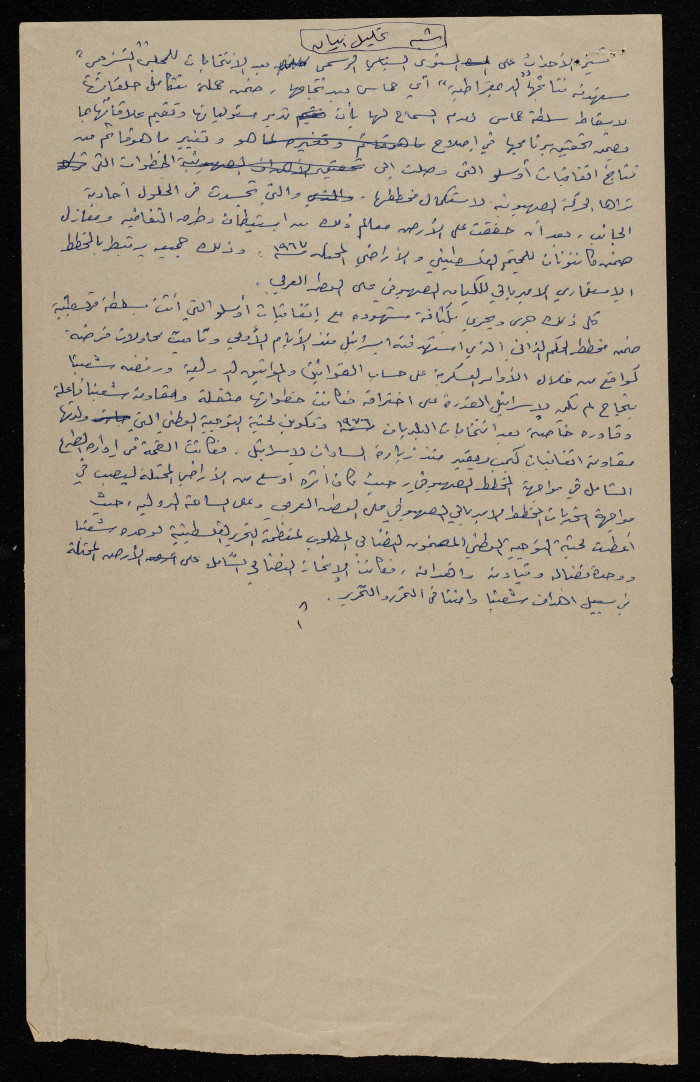 شبه تحليل بيان
تسير الأحداث على المستوى السياسي الرسمي بعد الانتخابات للمجلس "التشريعي"
مستهدفة نتائجها "الديمقراطية" أي حماس بعد نجاحها، ضمن حملة تتكامل حلقاتها
لاسقاط سلطة حماس وعدم السماح لها بأن تدير مسئولياتها وتقيم علاقاتها بما
يضمن تحقيق برنامجها في إصلاح ما هو قائم وتغيير ما هو قائم من
نتائج اتفاقيات أوسلو التي وصلت إلى تحقيق الأهداف الصهيونية الخطوات التي
تراها الحركة الصهيونية لاستكمال مخططها، والتي تجسدت في الحلول أحادية
الجانب، بعد أن حققت على الأرض معالم ذلك من استيطان وطرق التفافية ومعازل
ضمن كانتونات للمجتمع الفلسطيني والأراضي المحتلة ١٩٦٧، وذلك جميعه يرتبط بالمخطط
الاستعماري الامبريالي للكيان الصهيوني على الوطن العربي.
كل ذلك جرى ويجري بكثافة مشهودة مع إتفاقيات أوسلو التي أنشأت سلطة فلسطينية
ضمن مخطط الحكم الذاتي الذي استهدفته اسرائيل منذ الأيام الأولى وتتابعت محاولات فرضه
كواقع من خلال الأوامر العسكرية على حساب القوانين والمواثيق الدولية ورفضه شعبنا
بنجاح لم تكن لإسرائيل القدرة على اختراقه فكانت خطواتها متعثرة ومقاومة شعبنا فاعلة
وقادرة خاصة بعد انتخابات البلديات ١٩٧٦ وتكوين لجنة التوجيه الوطني التي ولدتها
مقاومة اتفاقيات كمب ديفيد منذ زيارة السادات لإسرائيل. فكانت القمة في إدارة الصراع
الشامل في مواجهة المخطط الصهيوني، حيث كان أثره أوسع من الأراضي المحتلة ليصب في
مواجهة المخطط الامبريالي الصهيوني على الوطن العربي وعلى الساحة الدولية، حيث
أعطت لجنة التوجيه الوطني المضمون النضالي المطلوب لمنظمة التحرير الفلسطينية لوحدة شعبنا
ووحدة نضاله وقيادته وأهدافه، فكانت الإنجاز النضالي الشامل على الأرض المحتلة
في سبيل أهداف شعبنا وأمتنا في التحرر والتحرير.